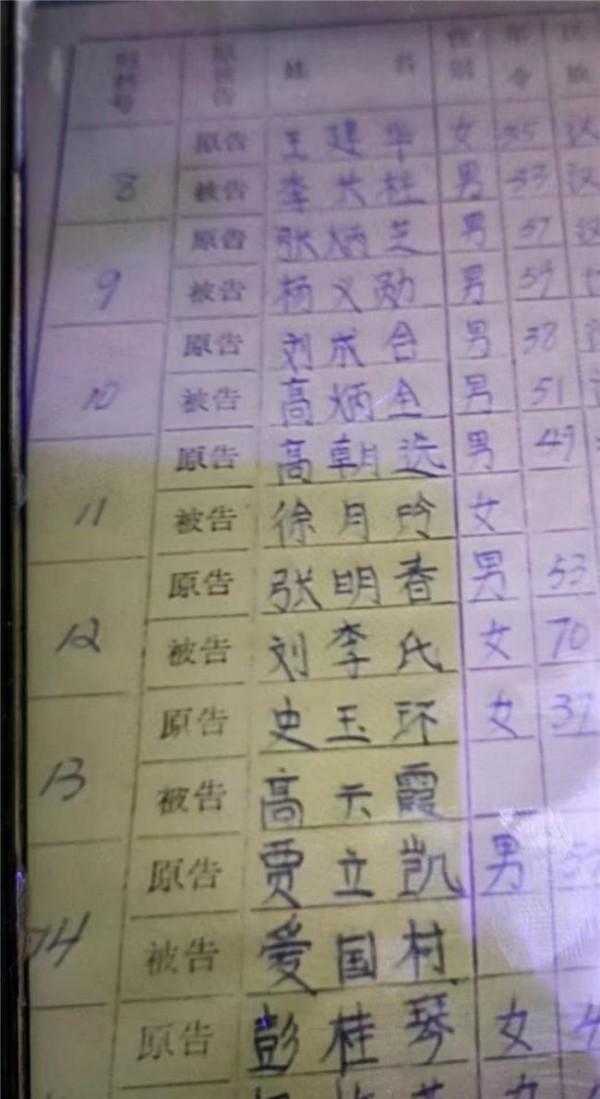 原被告 姓名 性别 年令 民族
8 原告 王建华 女 35 汉
被告 李兴桂 男 33 汉
9 原告 张炳芝 男 57 汉
被告 杨义勋 男 59
10 原告 刘成合 男 38
被告 高炳全 男 51
11 原告 高朝选 男 49
被告 徐月玲 女
12 原告 张明春 男 53
被告 刘李氏 女 70
13 原告 史玉环 女 37
被告 高云霞
14 原告 贾立凯 男
被告 爱国村
原告 彭桂琴 女 4